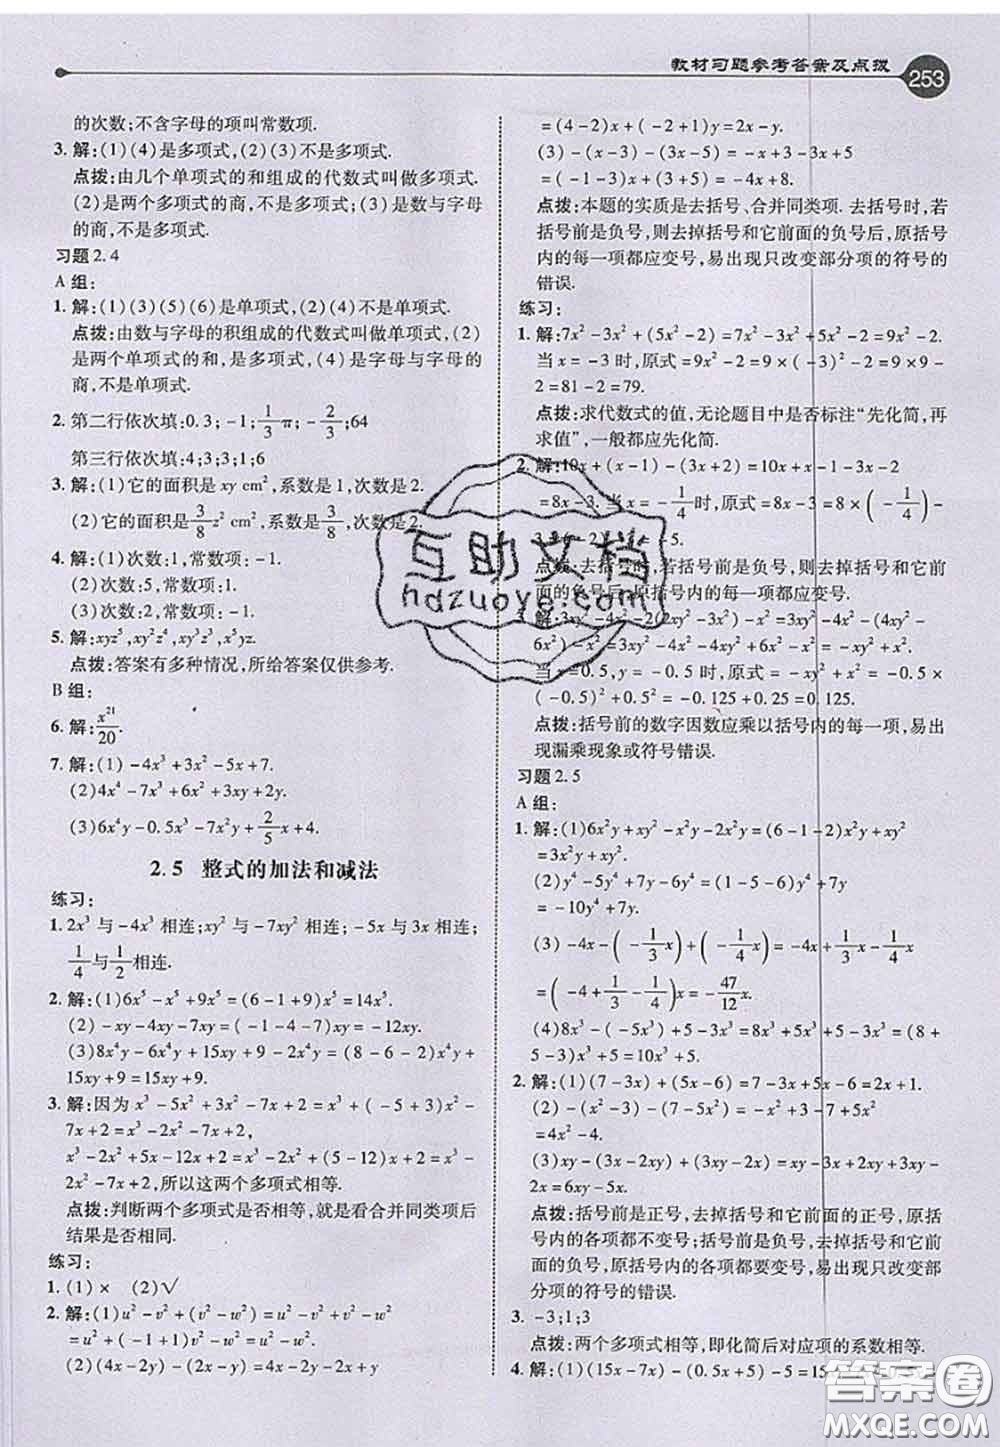 教材习题参考答案及点拨 253
的次数;不含字母的项叫常数项.
3. 解:(1)(4)是多项式,(2)(3)不是多项式.
点拨:由几个单项式的和组成的代数式叫做多项式.
(2)是两个多项式的商,不是多项式;(3)是数与字母
的商,不是多项式.
习题2.4
A组:
1. 解:(1)(3)(5)(6)是单项式,(2)(4)不是单项式.
点拨:由数与字母的积组成的代数式叫做单项式.(2)
是两个单项式的和,是多项式,(4)是字母与字母的
商,不是单项式.
2. 第二行依次填:0.3;-1;1/3π;-2/3;64
第三行依次填:4;3;3;1;6
3. 解:(1)它的面积是xy cm²,系数是1,次数是2.
(2)它的面积是3/8z² cm²,系数是3/8,次数是2.
4. 解:(1)次数:1,常数项:-1.
(2)次数:5,常数项:1.
(3)次数:2,常数项:-1.
5. 解:xyz⁵,xy²z⁴,xy³z³,x⁵yz.
点拨:答案有多种情况,所给答案仅供参考.
B组:
6. 解:x²¹/20.
7. 解:(1)-4x³+3x²-5x+7.
(2)4x⁴-7x³+6x²+3x-2.
(3)6x⁴y-0.5x³-7x²y+2/5x+4.
2.5 整式的加法和减法
练习:
1. 2x³与-4x³相连;xy²与-7xy²相连;-5x与3x相连;
1/4与1/2相连.
2. 解:(1)6x⁵-x⁵+9x⁵=(6-1+9)x⁵=14x⁵.
(2)-xy-4xy-7xy=(-1-4-7)xy=-12xy.
(3)8x⁴y-6x⁴y+15xy+9-2x⁴y=(8-6-2)x⁴y+
15xy+9=15xy+9.
3. 解:因为x³-5x²+3x²-7x+2=x³+(-5+3)x²-
7x+2=x³-2x²-7x+2,
x³-2x²+5x-12x+2=x³-2x²+(5-12)x+2=x³-
2x²-7x+2,所以这两个多项式相等.
点拨:判断两个多项式是否相等,就是看合并同类项后
结果是否相同.
练习:
1. (1)× (2)√
2. 解:(1)u²-v²+(v²-w²)=u²-v²+v²-w²
=u²+(-1+1)v²-w²=u²-w².
(2)(4x-2y)-(2x-y)=4x-2y-2x+y
=(4-2)x+(-2+1)y=2x-y.
(3)-(x-3)-(3x-5)=-x+3-3x+5
=(-1-3)x+(3+5)=-4x+8.
点拨:本题的实质是去括号、合并同类项.去括号时,若
括号前是负号,则去掉括号和它前面的负号后,原括号
内的每一项都应变号,易出现只改变部分项的符号的
错误.
练习:
1. 解:7x²-3x²+(5x²-2)=7x²-3x²+5x²-2=9x²-2.
当x=-3时,原式=9x²-2=9×(-3)²-2=9×9-
2=81-2=79.
点拨:求代数式的值,无论题目中是否标注“先化简,再
求值”,一般都应先化简.
2. 解:10x+(x-1)-(3x+2)=10x+x-1-3x-2
=8x-3.当x=-1/4时,原式=8x-3=8×(-1/4)-
点拨:去括号时,若括号前是负号,则去掉括号和它前
面的负号后,原括号内的每一项都要变号.
3. 解:3xy²-4x²-2(2xy²-3x²)-x²=3xy²-4x²-(4xy²-
6x²)-x²=3xy²-4x²-4xy²+6x²-x²=-xy²+x².
当x=0.5,y=-0.5时,原式=-xy²+x²=-0.5×
(-0.5)²+0.5²=-0.125+0.25=0.125.
点拨:括号前的数字因数应乘以括号内的每一项,易出
现漏乘现象或符号错误.
习题2.5
A组:
1. 解:(1)6x²y+xy²-x²y-2x²y=(6-1-2)x²y+xy²
=3x²y+xy².
(2)y⁴-5y⁴+7y-6y⁴=(1-5-6)y⁴+7y
=-10y⁴+7y.
(3)-4x-(-1/3x)+(-1/4x)=-4x+1/3x-1/4x
=(-4+1/3-1/4)x=-47/12x.
(4)8x³-(-5x³)+5-3x³=8x³+5x³+5-3x³=(8+
5-3)x³+5=10x³+5.
2. 解:(1)(7-3x)+(5x-6)=7-3x+5x-6=2x+1.
=4x²-4.
(3)xy-(3x-2xy)+3x=xy-3x+2xy+3x=3xy.
点拨:括号前是正号,去掉括号和它前面的正号,原括
号内的各项都不变号;括号前是负号,去掉括号和它前
面的负号,原括号内的各项都要变号,易出现只改变部
分项的符号的错误.
3. -3;1;3
点拨:两个多项式相等,即化简后对应项的系数相等.
4. 解:(1)(15x-7x)-(0.5x+5)-5=15x
互助文档
hdzuoye.com
答案圈
MXQE.COM